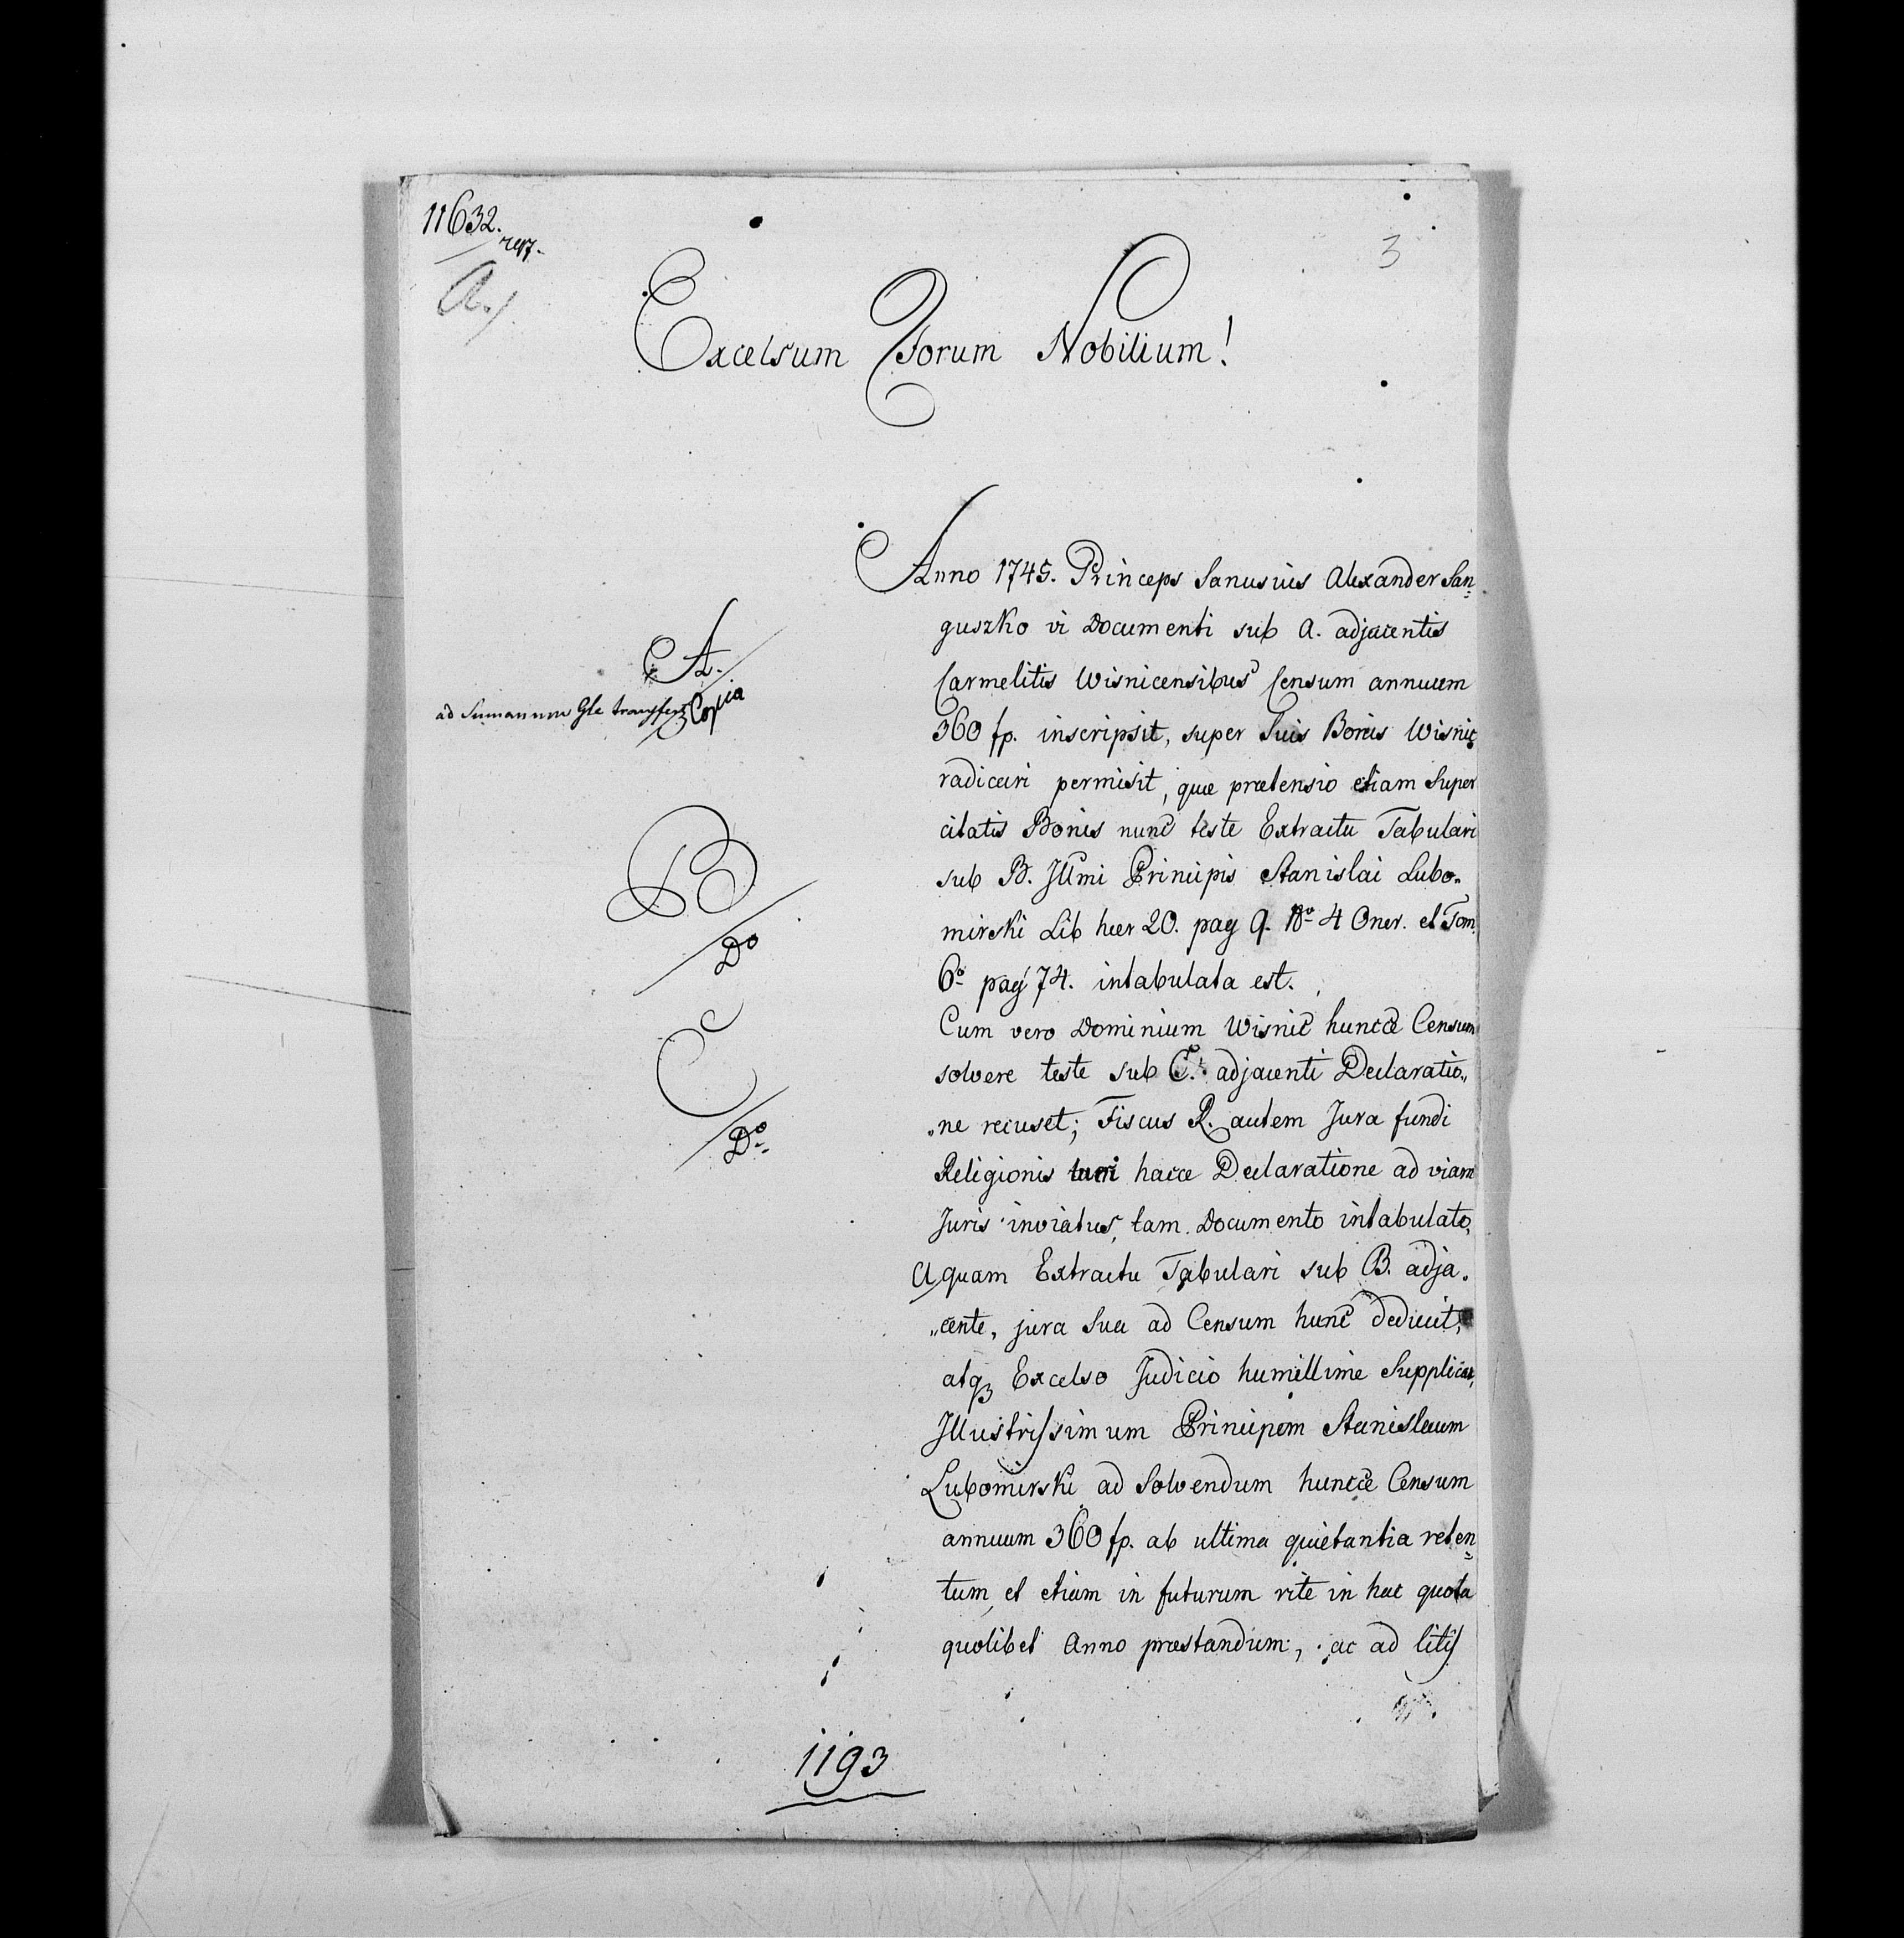 11632.
797.
a./.
3
Excelsum Forum Nobilium!
A./.
ad Summarium Gle transfert Copia
B
Do
C
Do
Anno 1745. Princeps Janusius Alexander San=
guszko vi Documenti sub A. adjacentis
Carmelitis Wisnicensibus Censum annuum
360 fp. inscripsit, super Suis Bonis Wisnic
radicari permisit, quæ prætensio etiam Super
citatis Bonis nunc teste Extractu Tabulari
sub B. Jllmi Principis Stanislai Lubo-
mirski Lib hær 20. pag 9. No 4 Oner. et Tom.
6o pag 74. intabulata est.
Cum vero Dominium Wisnic huncce Censum
solvere teste sub C. adjacenti Declaratio„
„ne recuset; Fiscus R. autem Jura fundi
Religionis hacce Declaratione ad viam
Juris inviatus, tam Documento intabulato,
A quam Extractu Tabulari sub B. adja„
„cente, jura Sua ad Censum hunc deducit,
atq3 Excelso Judicio humillime Supplicat,
Jllustrissimum Principem Stanislaum
Lubomirski ad Solvendum huncce Censum
annuum 360 fp. ab ultima quietantia reten=
tum, et etiam in futurum rite in hac quota
quolibet Anno præstandum, ac ad litis
1193